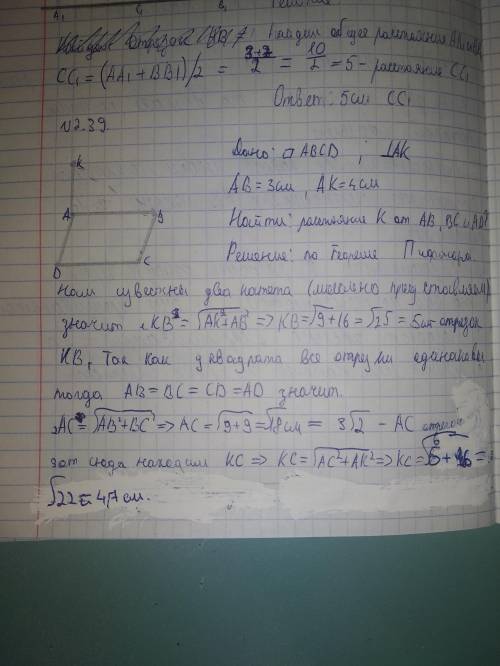 A₁ C₁ B₁ Решение
Найдем общее расстояние
CC₁ = (AA₁ + BB1)/2 = 3+7/2 = 10/2 = 5 - расстояние CC₁
Ответ: 5см CC₁
N2.39.
K
A B
D C
Дано: ▱ ABCD ; ⊥AK
AB = 3см, AK = 4см
Найти: расстояние K от AB, BC и AD
Решение: по Теореме Пифагора
Нам известны два катета (мысленно представляем)
значит KB² = √AK²+AB² => KB = √9+16 = √25 = 5см отрезок
KB, Так как у квадрата все отрезки одинаковы
тогда AB = BC = CD = AD значит.
AC² = √AB²+BC² => AC = √9+9 = √18см = 3√2 - AC отрезок
отсюда находим KC => KC = √AC²+AK² => KC = √6+16 =
√22 = 4,7 см.